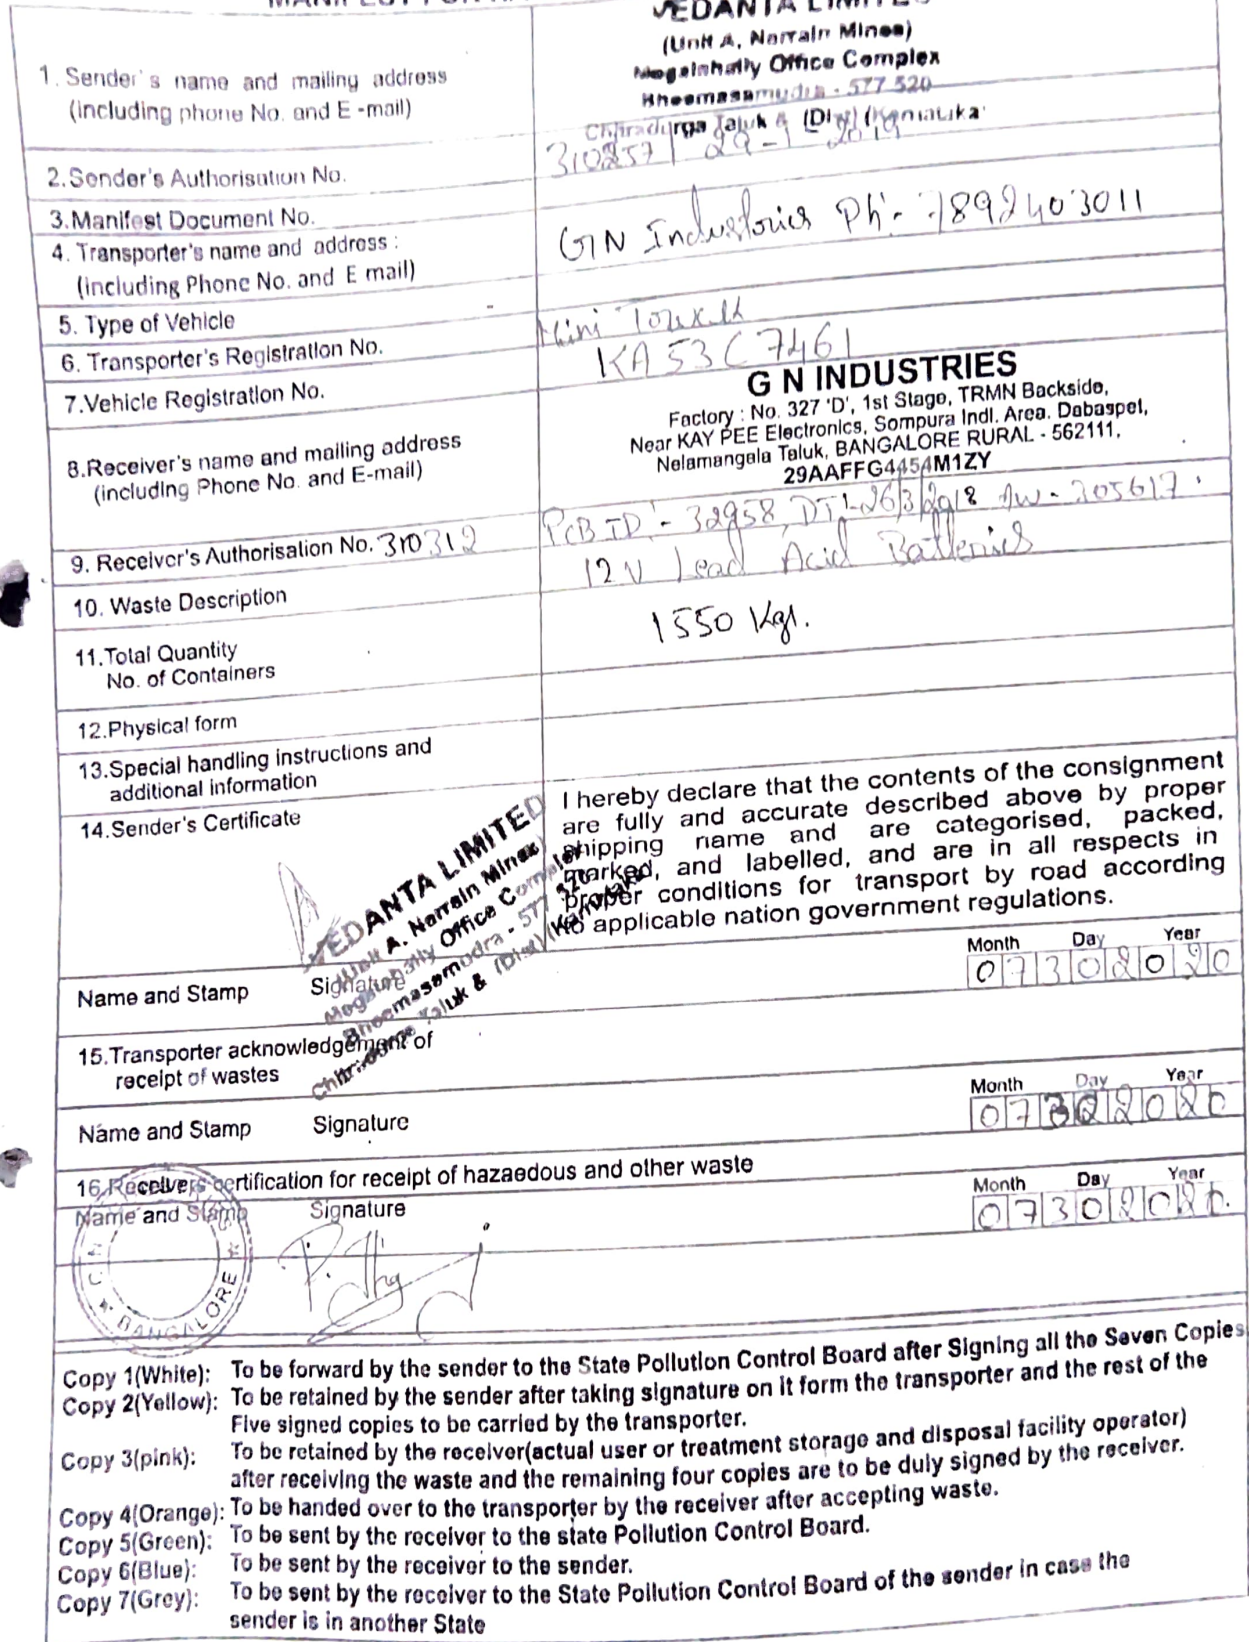 VEDANTA LIMITED
(Unit A, Narrain Mines)
1. Sender's name and mailing address
(including phone No. and E -mail)
Megalahally Office Complex
Bheemasamudra - 577 520
Chitradurga Taluk & (Dist) (Karnataka
2.Sender's Authorisation No.
310257 / 29-1-2019
3.Manifest Document No.
4. Transporter's name and address :
(including Phone No. and E mail)
GN Industries Ph:- 7892403011
5. Type of Vehicle
Mini
6. Transporter's Registration No.
KA53C7461
7.Vehicle Registration No.
8.Receiver's name and mailing address
(including Phone No. and E-mail)
G N INDUSTRIES
Factory : No. 327 'D', 1st Stage, TRMN Backside,
Near KAY PEE Electronics, Sompura Indl. Area. Dabaspet,
Nelamangala Taluk, BANGALORE RURAL - 562111.
29AAFFG4454M1ZY
9. Receiver's Authorisation No. 310312
PCB ID:- 32958, DT:-26/3/2018 - 305617.
10. Waste Description
12V Lead Acid Batteries
11.Total Quantity
No. of Containers
1550 Kgs.
12.Physical form
13.Special handling instructions and
additional information
14.Sender's Certificate
I hereby declare that the contents of the consignment
are fully and accurate described above by proper
shipping name and are categorised, packed,
marked, and labelled, and are in all respects in
proper conditions for transport by road according
to applicable nation government regulations.
VEDANTA LIMITED
(Unit A. Narrain Mines)
Megalahally Office Complex
Bheemasamudra - 577 520
Chitradurga Taluk & (Dist) (Karnataka)
Month Day Year
07302020
Name and Stamp Signature
15.Transporter acknowledgement of
receipt of wastes
Month Day Year
Name and Stamp Signature
16.Receivers certification for receipt of hazaedous and other waste
Month Day Year
07302020
Name and Stamp Signature
BANGALORE
Copy 1(White): To be forward by the sender to the State Pollution Control Board after Signing all the Seven Copies
Copy 2(Yellow): To be retained by the sender after taking signature on it form the transporter and the rest of the
Five signed copies to be carried by the transporter.
Copy 3(pink): To be retained by the receiver(actual user or treatment storage and disposal facility operator)
after receiving the waste and the remaining four copies are to be duly signed by the receiver.
Copy 4(Orange): To be handed over to the transporter by the receiver after accepting waste.
Copy 5(Green): To be sent by the receiver to the state Pollution Control Board.
Copy 6(Blue): To be sent by the receiver to the sender.
Copy 7(Grey): To be sent by the receiver to the State Pollution Control Board of the sender in case the
sender is in another State